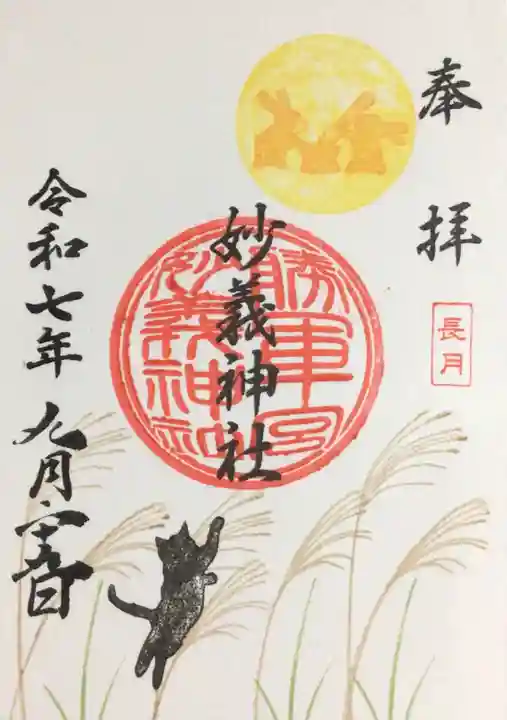 奉拝
長月
妙義神社
勝軍宮
妙義神社
令和七年九月二十五日